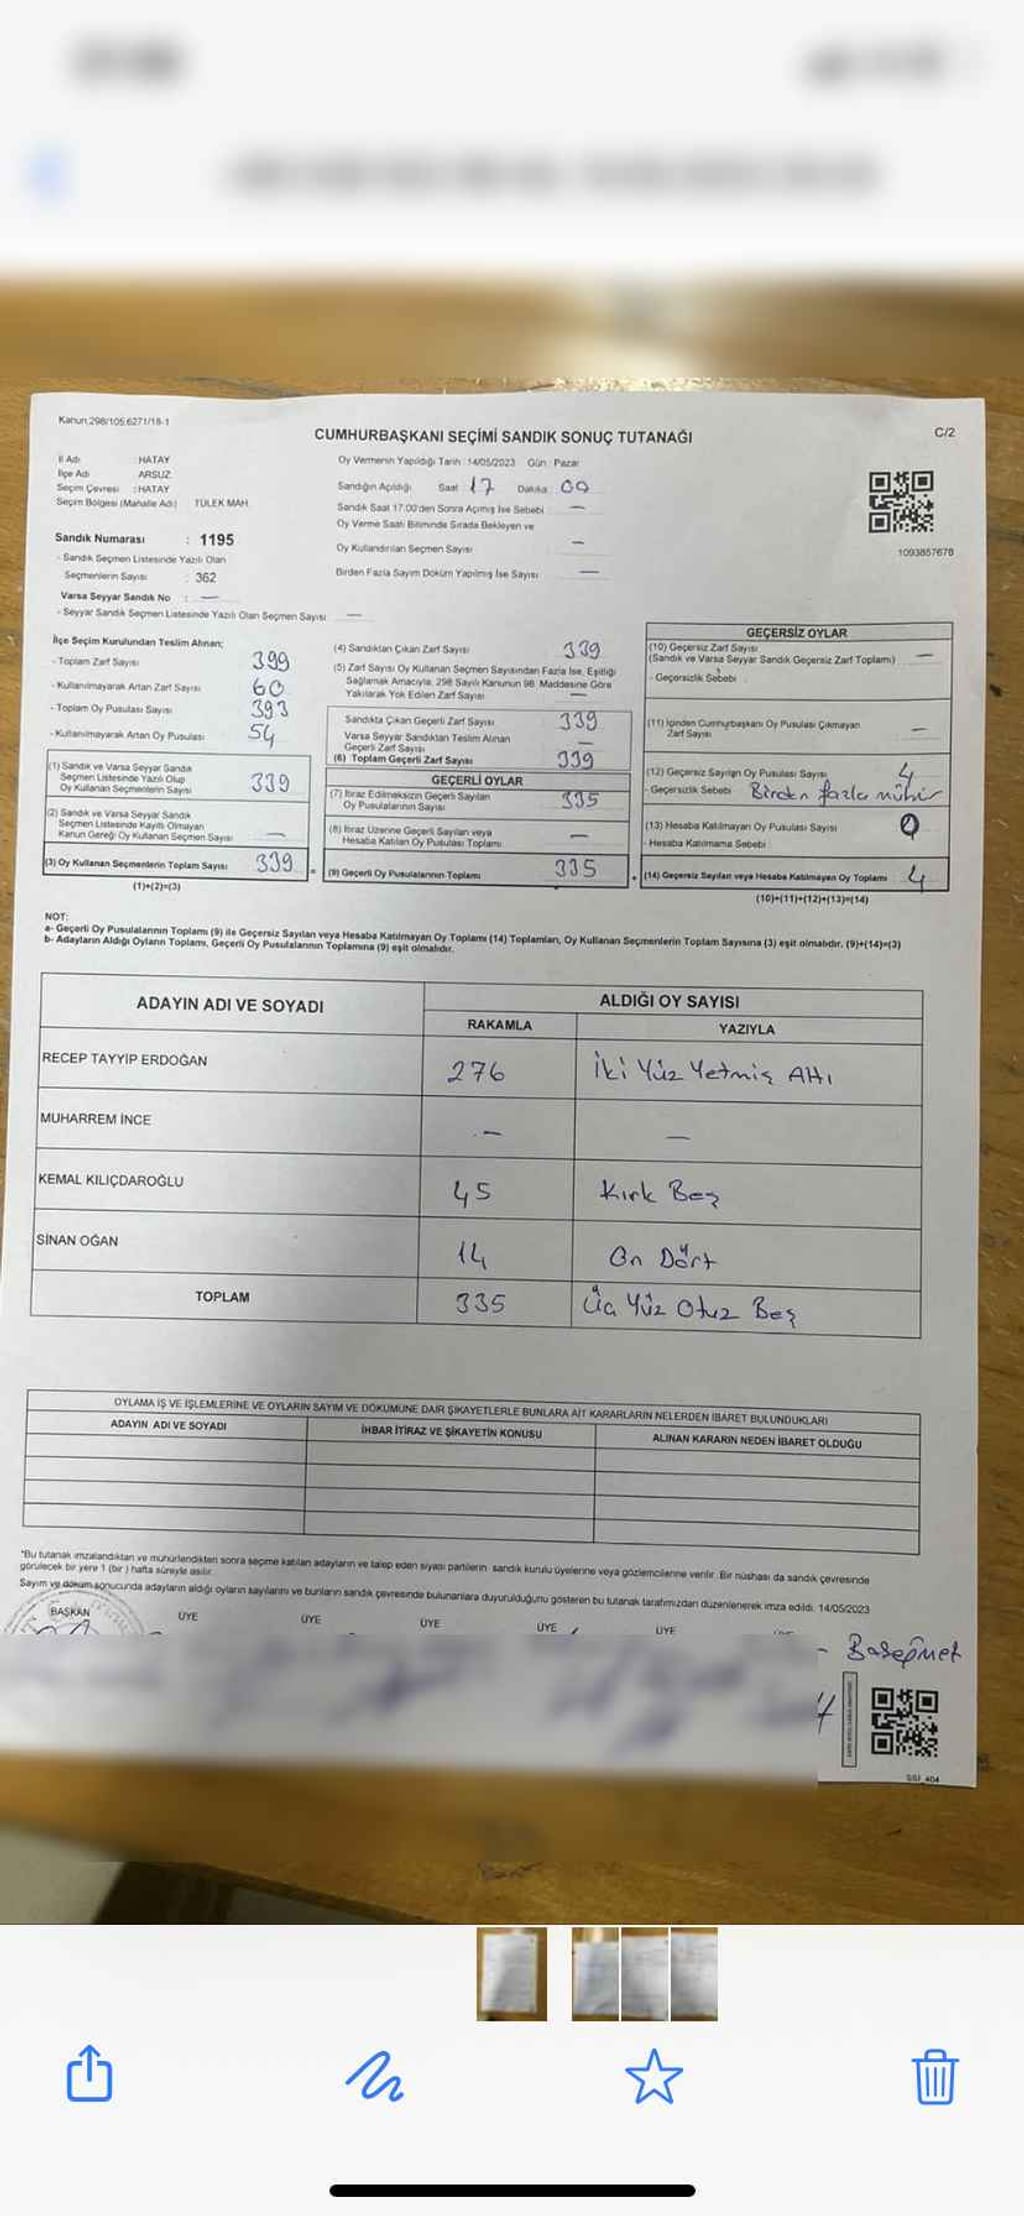 Kanun:298/105,6271/18-1
C/2
CUMHURBAŞKANI SEÇİMİ SANDIK SONUÇ TUTANAĞI
İl Adı : HATAY
İlçe Adı : ARSUZ
Seçim Çevresi : HATAY
Seçim Bölgesi (Mahalle Adı) TÜLEK MAH.
Sandık Numarası : 1195
- Sandık Seçmen Listesinde Yazılı Olan
Seçmenlerin Sayısı : 362
Varsa Seyyar Sandık No : —
- Seyyar Sandık Seçmen Listesinde Yazılı Olan Seçmen Sayısı —
Oy Vermenin Yapıldığı Tarih :14/05/2023 Gün : Pazar
Sandığın Açıldığı Saat 17 Dakika 09
Sandık Saat 17.00'den Sonra Açılmış İse Sebebi —
Oy Verme Saati Bitiminde Sırada Bekleyen ve
Oy Kullandırılan Seçmen Sayısı —
Birden Fazla Sayım Döküm Yapılmış İse Sayısı —
1093857678
İlçe Seçim Kurulundan Teslim Alınan;
- Toplam Zarf Sayısı 399
- Kullanılmayarak Artan Zarf Sayısı 60
- Toplam Oy Pusulası Sayısı 393
- Kullanılmayarak Artan Oy Pusulası 54
(1) Sandık ve Varsa Seyyar Sandık
Seçmen Listesinde Yazılı Olup
Oy Kullanan Seçmenlerin Sayısı 339
(2) Sandık ve Varsa Seyyar Sandık
Seçmen Listesinde Kayıtlı Olmayan
Kanun Gereği Oy Kullanan Seçmen Sayısı —
(3) Oy Kullanan Seçmenlerin Toplam Sayısı 339
(1)+(2)=(3)
(4) Sandıktan Çıkan Zarf Sayısı 339
(5) Zarf Sayısı Oy Kullanan Seçmen Sayısından Fazla İse, Eşitliği
Sağlamak Amacıyla, 298 Sayılı Kanunun 98. Maddesine Göre
Yakılarak Yok Edilen Zarf Sayısı —
Sandıkta Çıkan Geçerli Zarf Sayısı 339
Varsa Seyyar Sandıktan Teslim Alınan
Geçerli Zarf Sayısı —
(6) Toplam Geçerli Zarf Sayısı 339
GEÇERLİ OYLAR
(7) İtiraz Edilmeksizin Geçerli Sayılan
Oy Pusulalarının Sayısı 335
(8) İtiraz Üzerine Geçerli Sayılan veya
Hesaba Katılan Oy Pusulası Toplamı —
= (9) Geçerli Oy Pusulalarının Toplamı 335
GEÇERSİZ OYLAR
(10) Geçersiz Zarf Sayısı
(Sandık ve Varsa Seyyar Sandık Geçersiz Zarf Toplamı) —
- Geçersizlik Sebebi
(11) İçinden Cumhurbaşkanı Oy Pusulası Çıkmayan
Zarf Sayısı —
(12) Geçersiz Sayılan Oy Pusulası Sayısı 4
- Geçersizlik Sebebi Birden fazla mühür
(13) Hesaba Katılmayan Oy Pusulası Sayısı 0
- Hesaba Katılmama Sebebi
+ (14) Geçersiz Sayılan veya Hesaba Katılmayan Oy Toplamı 4
(10)+(11)+(12)+(13)=(14)
NOT:
a- Geçerli Oy Pusulalarının Toplamı (9) ile Geçersiz Sayılan veya Hesaba Katılmayan Oy Toplamı (14) Toplamları, Oy Kullanan Seçmenlerin Toplam Sayısına (3) eşit olmalıdır. (9)+(14)=(3)
b- Adayların Aldığı Oyların Toplamı, Geçerli Oy Pusulalarının Toplamına (9) eşit olmalıdır.
ADAYIN ADI VE SOYADI
ALDIĞI OY SAYISI
RAKAMLA YAZIYLA
RECEP TAYYİP ERDOĞAN 276 İki Yüz Yetmiş Altı
MUHARREM İNCE — —
KEMAL KILIÇDAROĞLU 45 Kırk Beş
SİNAN OĞAN 14 On Dört
TOPLAM 335 Üç Yüz Otuz Beş
OYLAMA İŞ VE İŞLEMLERİNE VE OYLARIN SAYIM VE DÖKÜMÜNE DAİR ŞİKAYETLERLE BUNLARA AİT KARARLARIN NELERDEN İBARET BULUNDUKLARI
ADAYIN ADI VE SOYADI İHBAR İTİRAZ VE ŞİKAYETİN KONUSU ALINAN KARARIN NEDEN İBARET OLDUĞU
*Bu tutanak imzalandıktan ve mühürlendikten sonra seçime katılan adayların ve talep eden siyasi partilerin sandık kurulu üyelerine veya gözlemcilerine verilir. Bir nüshası da sandık çevresinde
görülecek bir yere 1 (bir) hafta süreyle asılır.
Sayım ve döküm sonucunda adayların aldığı oyların sayılarını ve bunların sandık çevresinde bulunanlara duyurulduğunu gösteren bu tutanak tarafımızdan düzenlenerek imza edildi. 14/05/2023
BAŞKAN ÜYE ÜYE ÜYE ÜYE ÜYE